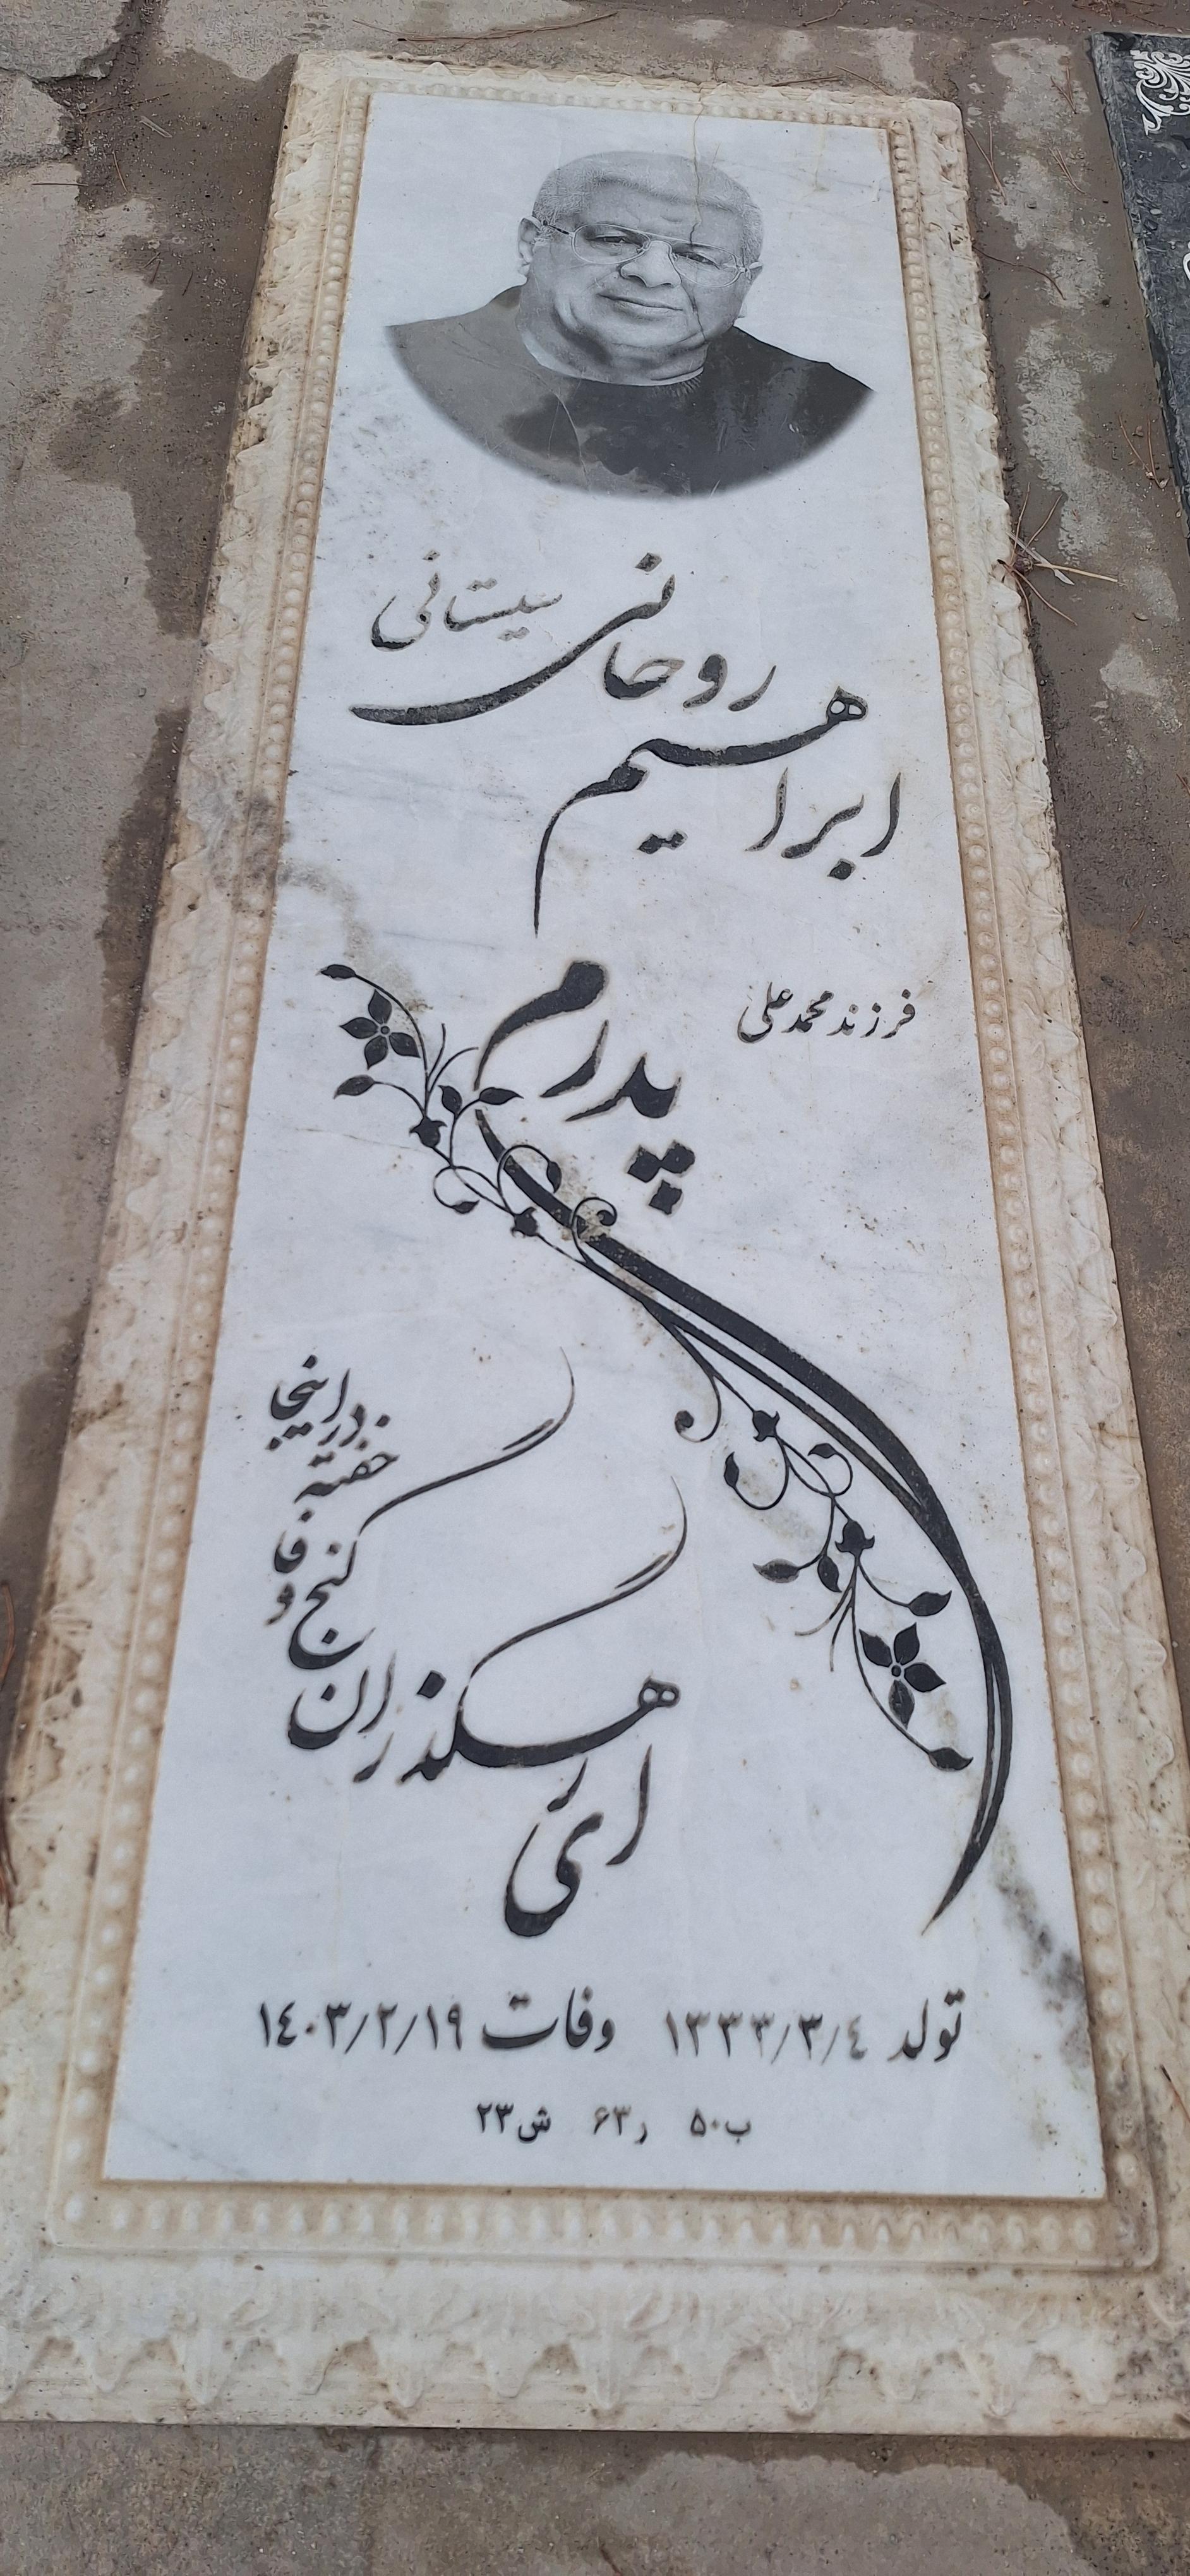 ابراهیم روحانی سیستانی
فرزند محمد علی
پدرم
ای رهگذران گنج وفا خفته در اینجا
تولد ۱۳۳۳/۳/٤ وفات ۱٤۰۳/۲/۱۹
ب۵۰ ر۶۳ ش۲۳